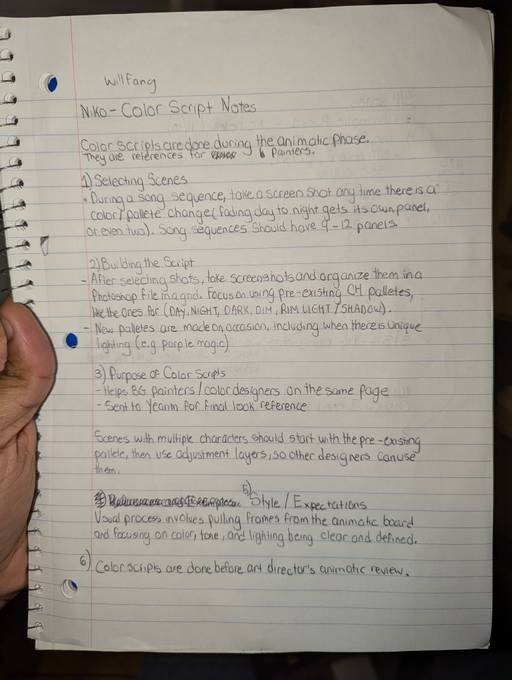 Will Fang
Niko - Color Script Notes
Color Scripts are done during the animatic phase.
They are references for b painters.
1) Selecting Scenes
• During a song sequence, take a screen shot any time there is a
color/pallete change (fading day to night gets its own panel,
or even two). Song sequences should have 9-12 panels
2) Building the Script
- After selecting shots, take screenshots and organize them in a
Photoshop file in a grid. Focus on using pre-existing CH palletes,
like the ones for (DAY, NIGHT, DARK, DIM, RIM LIGHT/SHADOW).
- New palletes are made on occasion, including when there is unique
lighting (e.g purple magic)
3) Purpose of Color Scripts
- Helps BG painters/color designers on the same page
- Sent to for final look reference
Scenes with multiple characters should start with the pre-existing
pallete, then use adjustment layers, so other designers can use
them.
5) Style/Expectations
Usual process involves pulling frames from the animatic board
and focusing on color, tone, and lighting being clear and defined.
6) Color scripts are done before art director's animatic review.